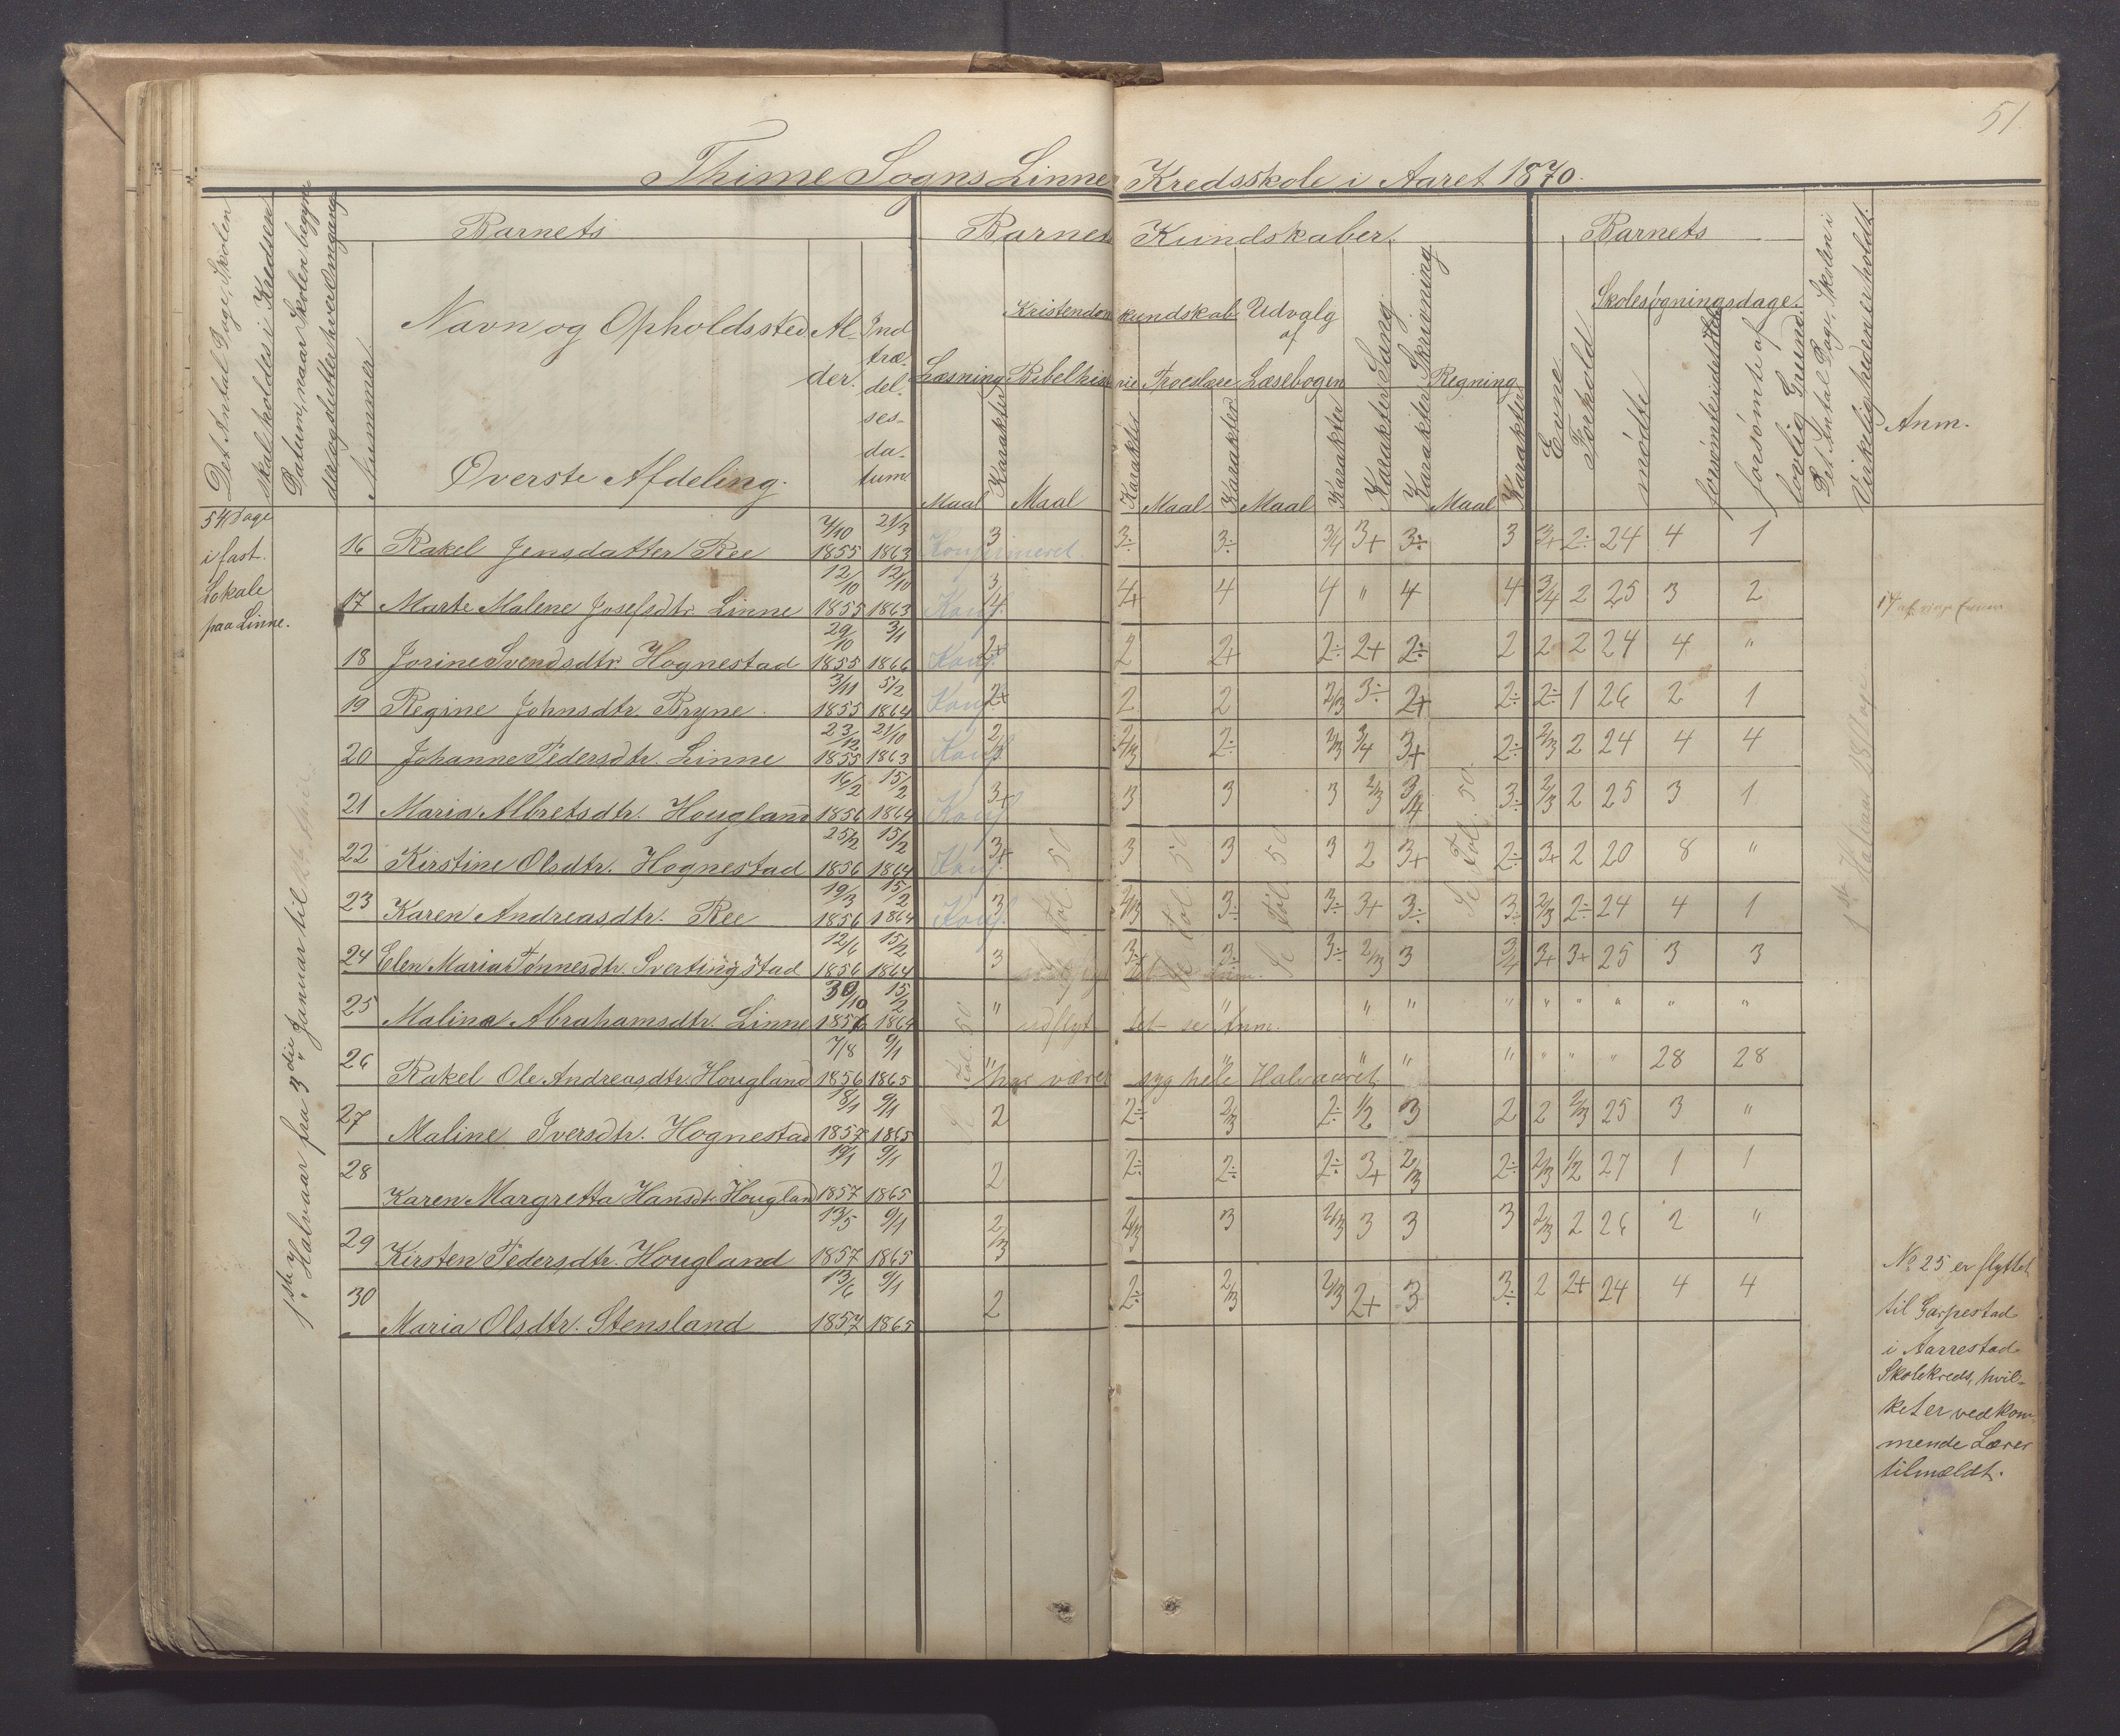 51.
Thime Sogns Linne Kredsskole i Aaret 1870.
Det Antal Dage, Skolen
skal holdes i Kredsen
Datum, naar Skolen begyn
der og slutter hver Omgang
Nummer
Barnets
Navn og Opholdssted.
Øverste Afdeling.
Al-
der.
Ind
træ-
del-
ses-
da-
tum
Barnets Kundskaber.
Læsning
Maal
Karakter
Kristendomskundskab
Bibelhistorie
Maal
Karakter
Troeslære
Maal
Karakter
Udvalg
af
Læsebogen
Maal
Karakter
Sang
Karakter
Skrivning
Karakter
Regning
Maal
Karakter
Barnets
Evne
Forhold
Skolesøgningsdage.
mødte
forsømte
forsømte af
lovlig Grund.
Det Antal Dage, Skolen i
Virkeligheden er holdt.
Anm.
54 Dage
i fast.
Lokale
paa Linne.
1ste Halvaar fra 3die Januar til
16 Rakel Jensdatter Ree 7/10 1855 21/3 1863 Konfirmeret. 3 3÷ 3÷ 3/4 3+ 3÷ 3 3+ 2÷ 24 4 1
17 Marte Malene Josefsdtr Linne 12/10 1855 12/10 1863 Konf. 3/4 4+ 4 4 " 4 4 3/4 2 25 3 2
18 Jorine Svendsdtr Hognestad 29/10 1855 3/1 1866 Konf. 2+ 2 2+ 2÷ 2+ 2÷ 2 2 2 24 4 "
19 Regine Johnsdtr. Bryne 3/11 1855 5/2 1864 Konf. 2+ 2 2 2/3 3÷ 2+ 2÷ 2÷ 1 26 2 1
20 Johanne Pedersdtr. Linne 23/12 1855 21/10 1863 Konf. 2/3 2/3 2÷ 2/3 3/4 3+ 2÷ 2/3 2 24 4 4
21 Maria Albretsdtr. Hougland 16/2 1856 15/2 1864 Konf. 3+ 3 3 3 2/3 3/4 3÷ 2/3 2 25 3 1
22 Kirstine Olsdtr. Hognestad 25/2 1856 15/2 1864 Konf. 3+ 3 3 3 2 3+ 2÷ 3+ 2 20 8 "
23 Karen Andreasdtr. Ree 19/3 1856 15/2 1864 Konf. 3 2/3 3÷ 3÷ 3+ 3÷ 3÷ 2/3 2÷ 24 4 1
24 Elen Maria Tønnesdtr. Svertingstad 12/6 1856 15/2 1864 3 3÷ 3÷ 3÷ 2/3 3 3/4 3+ 3+ 25 3 3
25 Malina Abrahamsdtr. Linne 30/10 1856 15/2 1864 " udflyttet se Anm. " " " " " " " " "
26 Rakel Ole Andreasdtr. Hougland 7/8 1856 9/1 1865 " har været syg hele Halvaaret. " " " " " " " 28 28
27 Maline Iversdtr. Hognestad 18/1 1857 9/1 1865 2 2÷ 2/3 2÷ 1/2 3 2 2 2/3 25 3 "
28 Karen Margretta Hansdtr Hougland 19/1 1857 9/1 1865 2 2÷ 2÷ 2÷ 3+ 2/3 2÷ 2/3 1/2 27 1 1
29 Kirsten Pedersdtr. Hougland 13/5 1857 9/1 1865 2/3 2/3 3 2/3 3 3 3 2/3 2 26 2 "
30 Maria Olsdtr. Stensland 13/6 1857 9/1 1865 2 2÷ 2/3 2/3 2+ 3 3÷ 2 2+ 24 4 4
Se Fol. 50
Se Fol. 50
Se Fol. 50
Se Fol. 50
Se Fol. 50.
1ste Halvaar 28 Dage
No 25 er flyttet
til Garpestad
i Aarrestad
Skolekreds, hvil-
ket er vedkom-
mende Lærer
tilmeldt.